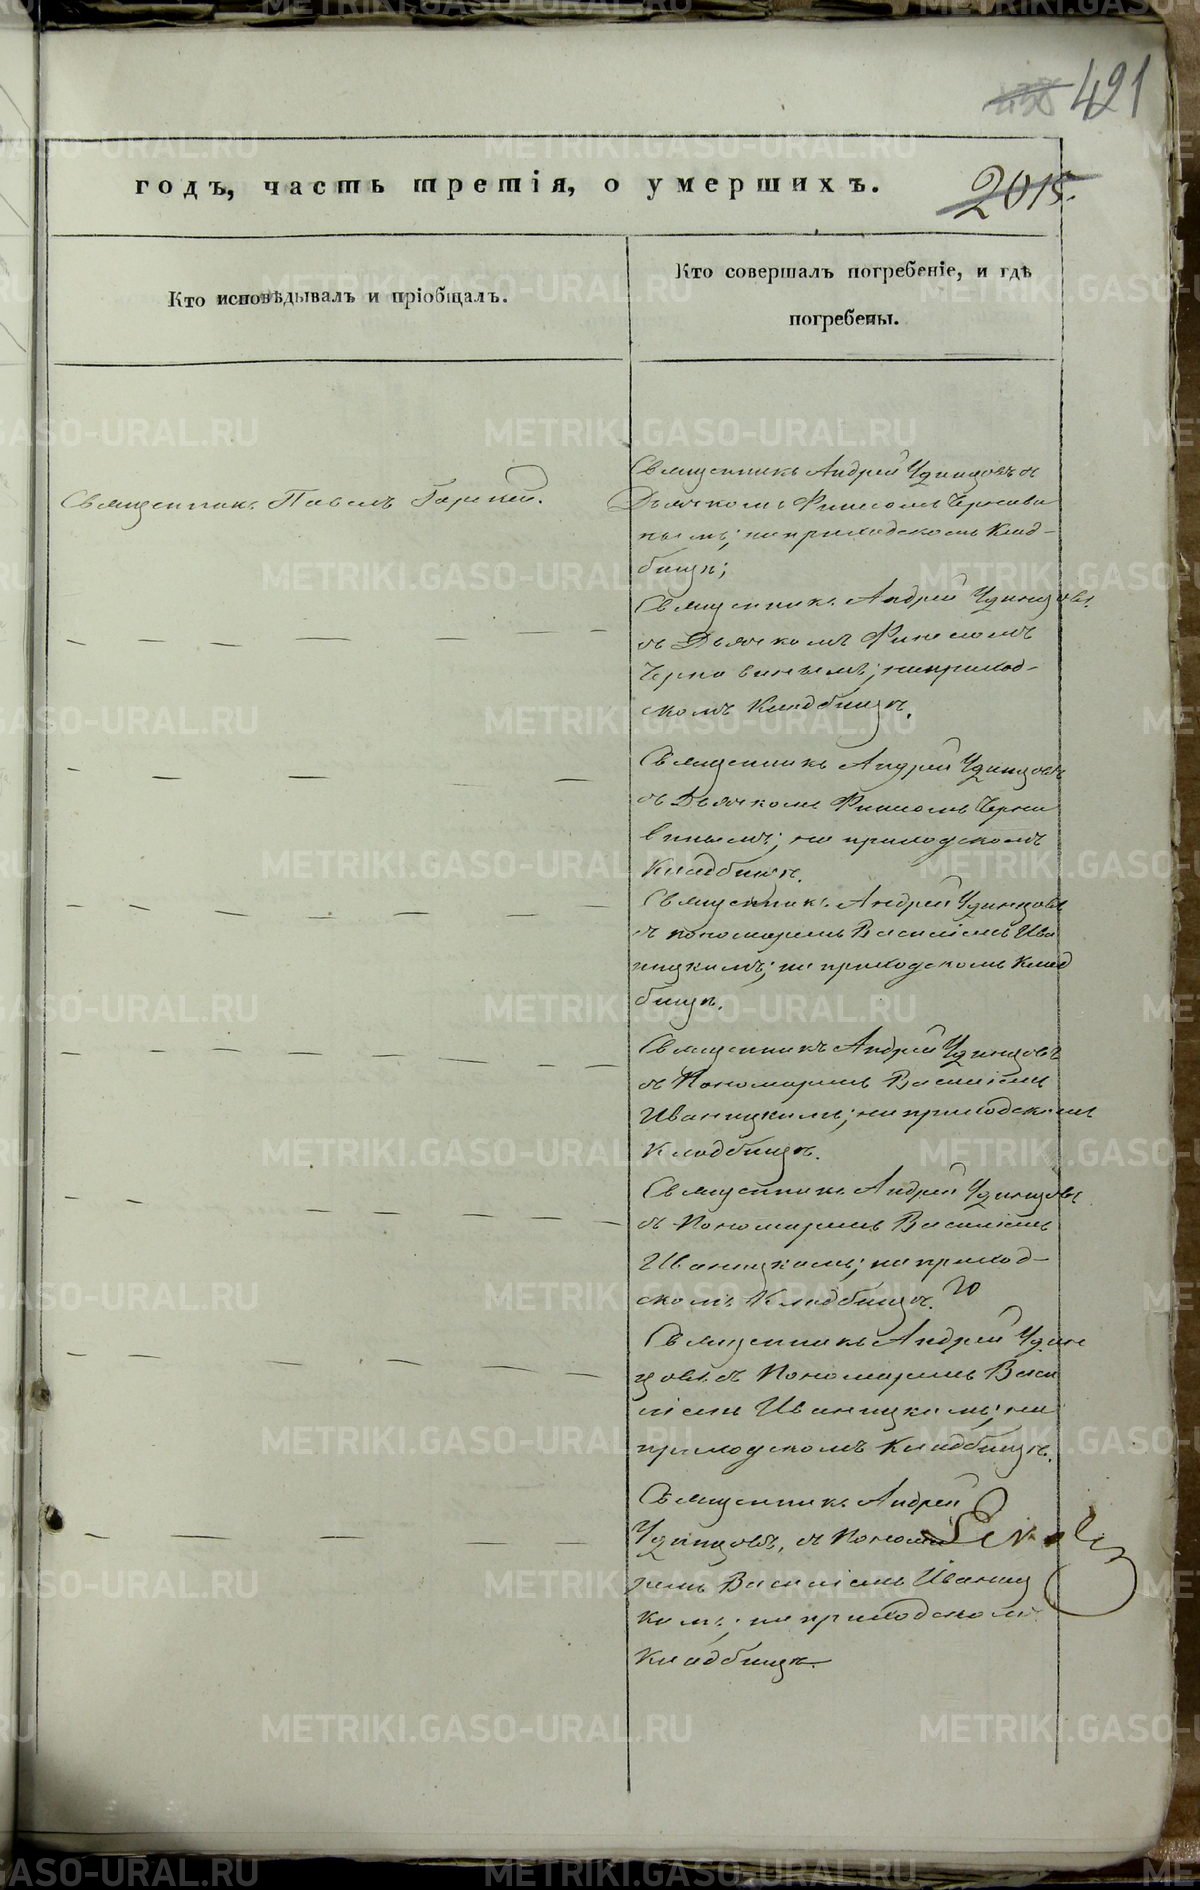 421
годъ, часть третія, о умершихъ.
2015.
Кто исповѣдывалъ и пріобщалъ.
Кто совершалъ погребеніе, и гдѣ
погребены.
Священникъ Павелъ
Священникъ Андрей Удинцовъ съ
Дьячкомъ Финесомъ Чернави
нымъ; на приходскомъ Клад-
бищѣ;
Священникъ Андрей Удинцовъ
съ Дьячкомъ Финесомъ
Чернавинымъ; на приход-
скомъ Кладбищѣ.
Священникъ Андрей Удинцовъ
съ Дьячкомъ Финесомъ Черна
винымъ; на приходскомъ
Кладбищѣ.
Священникъ Андрей Удинцовъ
съ пономаремъ Василіемъ Ива
ницкимъ; на приходскомъ Клад
бищѣ.
Священникъ Андрей Удинцовъ
съ Пономаремъ Василіемъ
Иваницкимъ; на приходскомъ
Кладбищѣ.
Священникъ Андрей Удинцовъ
съ Пономаремъ Василіемъ
Иваницкимъ; на приход-
скомъ Кладбищѣ.
Священникъ Андрей Удин
цовъ съ Пономаремъ Васи
ліемъ Иваницкимъ; на
приходскомъ Кладбищѣ.
Священникъ Андрей
Удинцовъ, съ Понома
ремъ Василіемъ Иваниц
кимъ; на приходскомъ
Кладбищѣ.
METRIKI.GASO-URAL.RU